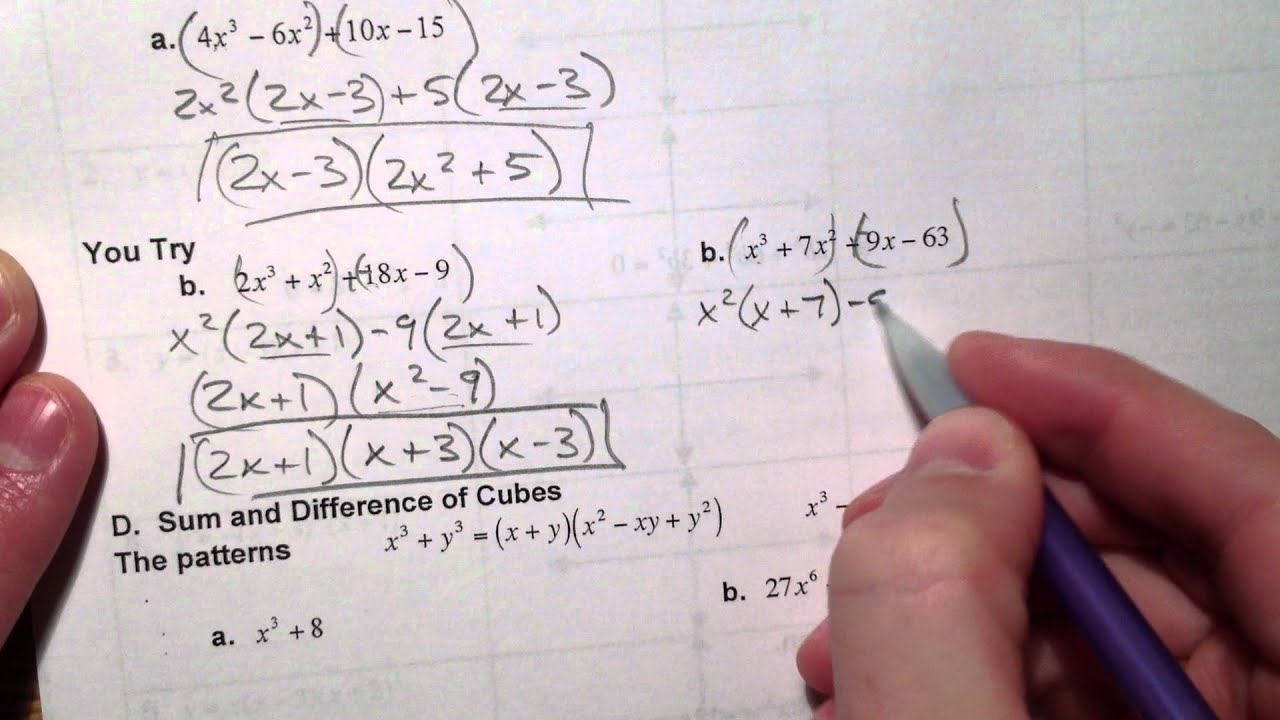 a. (4x³ − 6x²) + (10x − 15)
2x²(2x−3) + 5(2x−3)
(2x−3)(2x² + 5)
You Try
b. (2x³ + x²) + (−18x − 9)
x²(2x+1) − 9(2x+1)
(2x+1)(x² − 9)
(2x+1)(x+3)(x−3)
b. (x³ + 7x²) + (−9x − 63)
x²(x+7) − 9
D. Sum and Difference of Cubes
The patterns x³ + y³ = (x + y)(x² − xy + y²) x³ −
a. x³ + 8
b. 27x⁶